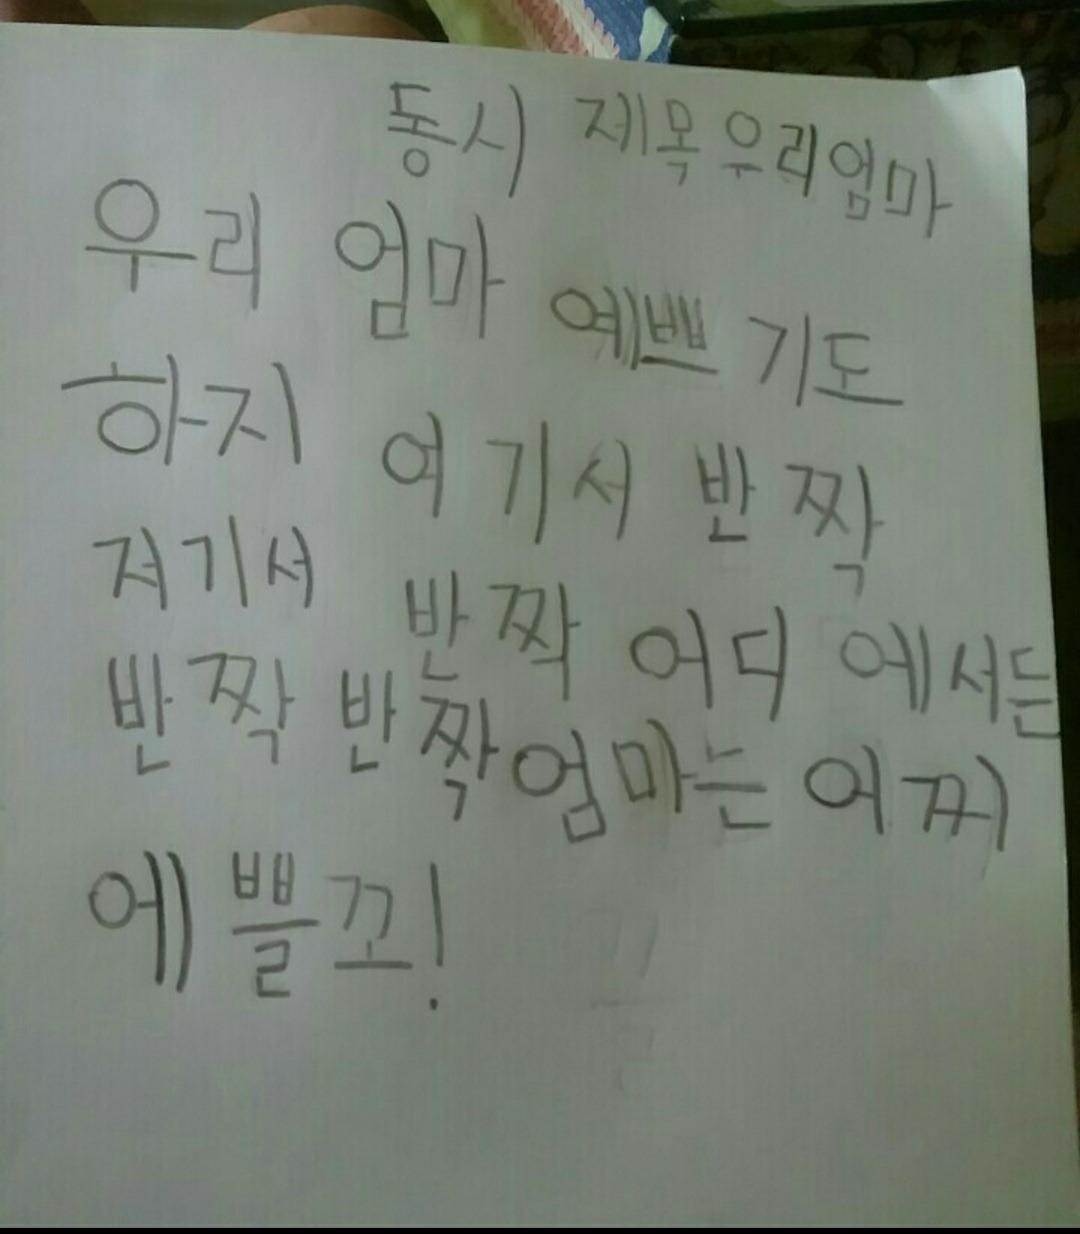 동시 제목 우리엄마
우리 엄마 예쁘기도
하지 여기서 반짝
저기서 반짝 어디에서든
반짝 반짝 엄마는 어찌
에쁠꼬!